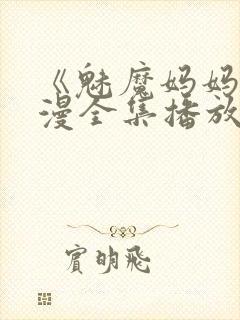 《魅魔妈妈
漫全集播放
宾明飛